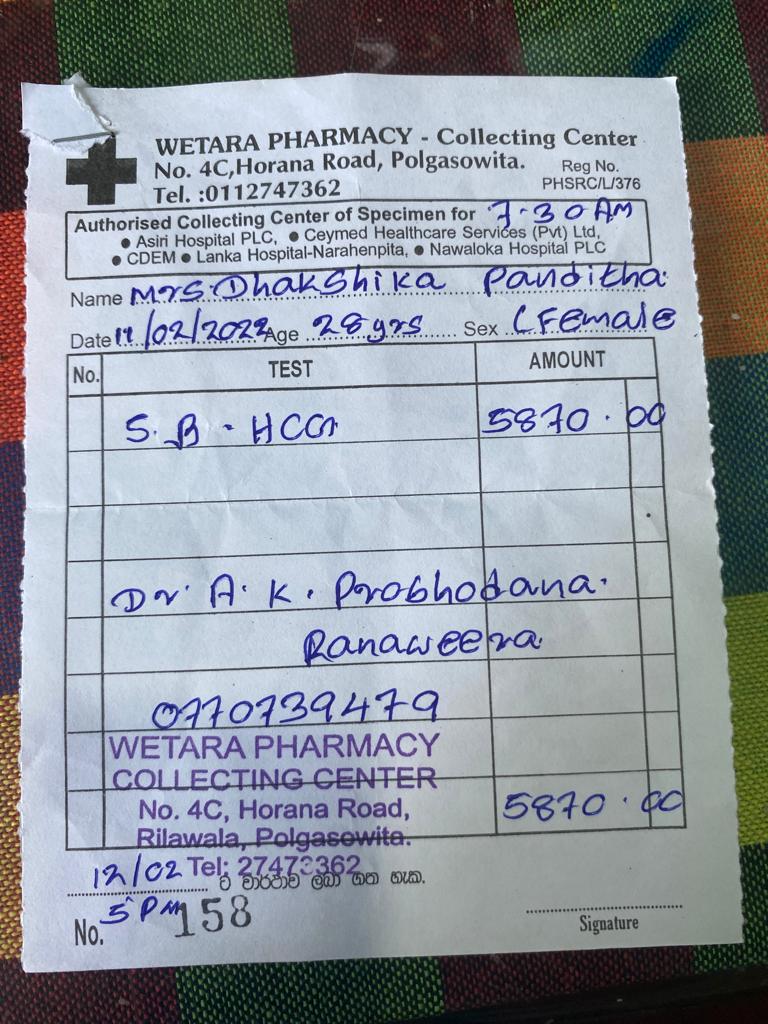 WETARA PHARMACY - Collecting Center
No. 4C,Horana Road, Polgasowita.
Reg No.
Tel. :0112747362
PHSRC/L/376
Authorised Collecting Center of Specimen for 7-30 AM
● Asiri Hospital PLC, ● Ceymed Healthcare Services (Pvt) Ltd,
● CDEM ● Lanka Hospital-Narahenpita, ● Nawaloka Hospital PLC
Name Mrs. Dhakshika Panditha.
Date /02/2022 Age 28 yrs Sex (Female
No. TEST AMOUNT
S. B - HCG 5870. 00
Dr. A. K. Probhodana.
Ranaweera
0770739479
WETARA PHARMACY
COLLECTING CENTER
No. 4C, Horana Road, 5870. 00
Rilawala, Polgasowita.
12/02 Tel: 2747362
ට වාර්තාව ලබා ගත හැක.
5 PM
No. 158
Signature